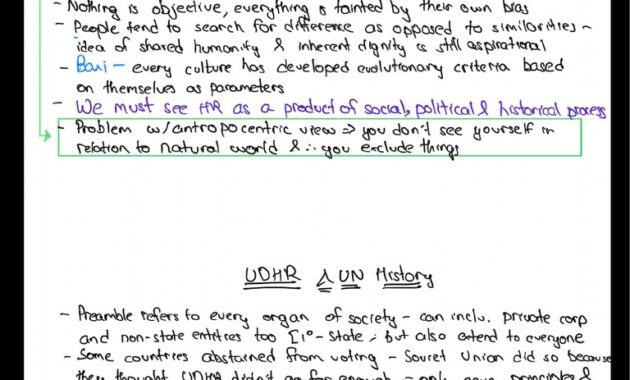 - Nothing is objective, everything is tainted by their own bias
- People tend to search for difference as opposed to similarities ~
idea of shared humanity & inherent dignity is still aspirational
- Baxi - every culture has developed evolutionary criteria based
on themselves as parameters
- We must see HR as a product of social, political & historical process
- Problem w/ antropocentric view => you don't see yourself in
relation to natural world & ∴ you exclude things
UDHR & UN History
- Preamble refers to every organ of society - can inclu. private corp
and non-state entities too [1° - State ; but also extend to everyone
- Some countries abstained from voting - Soviet Union did so because
they thought UDHR didn't go far enough - only gave principles &